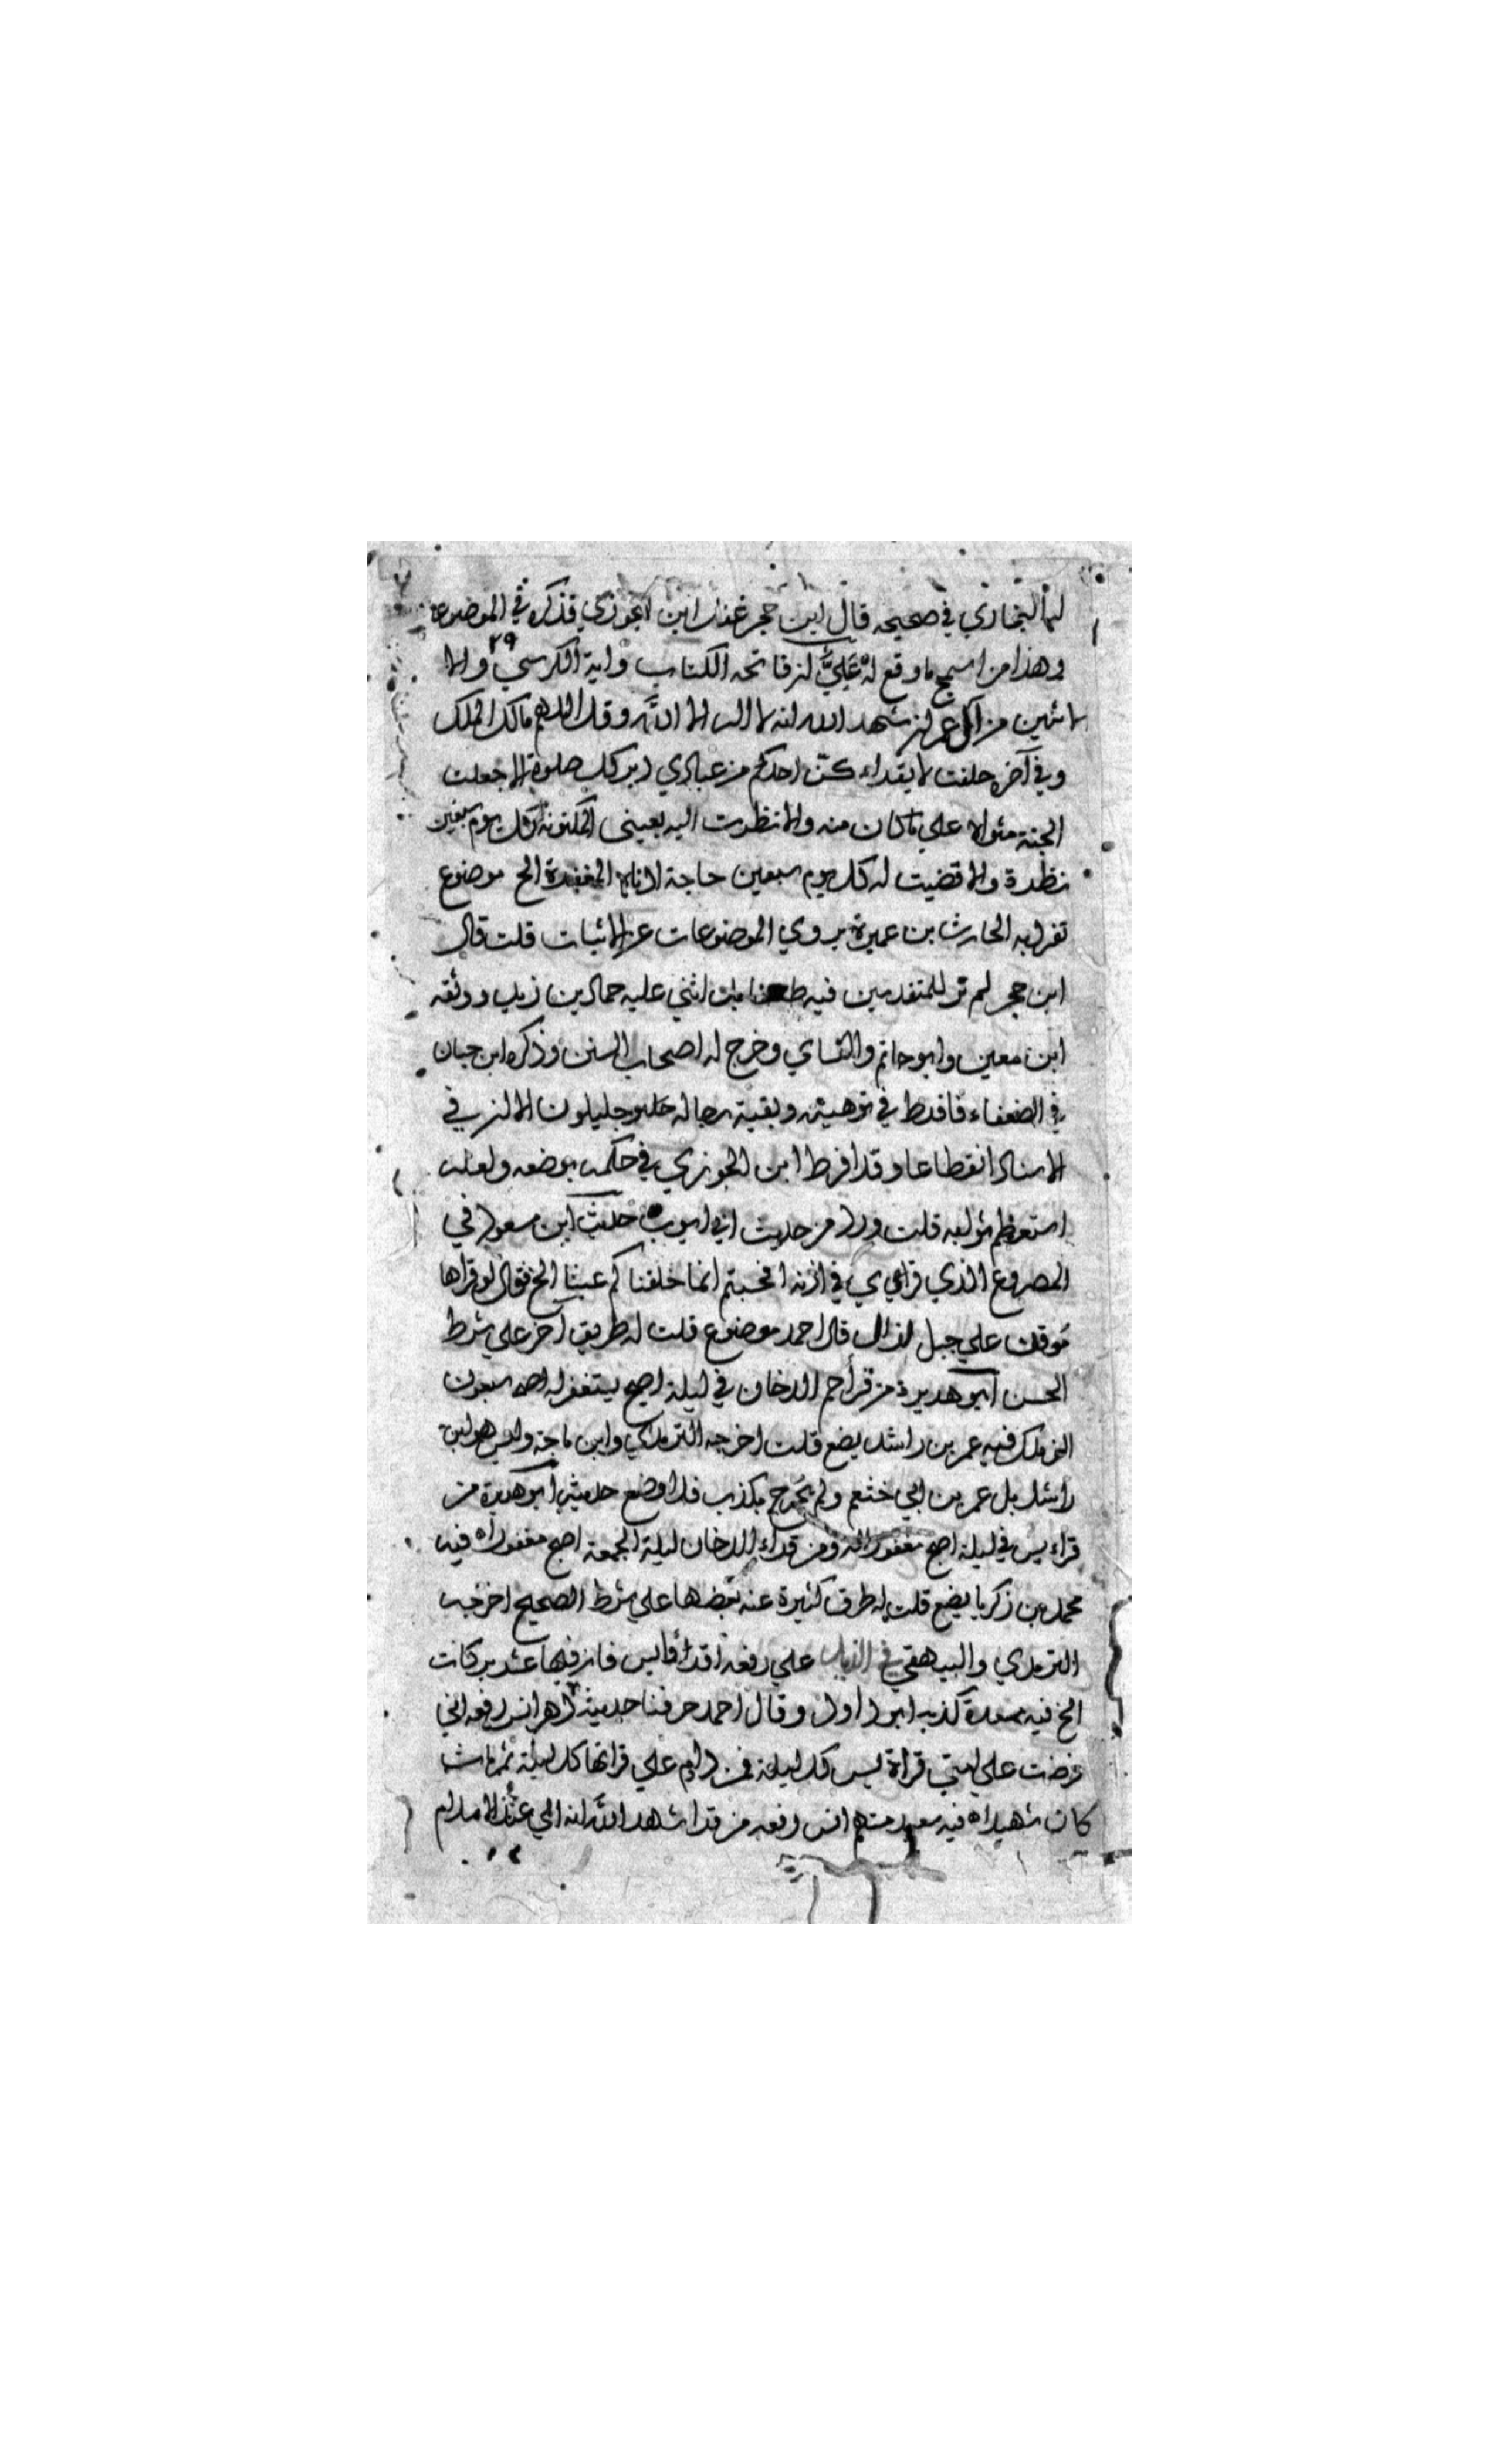 لها البخاري في صحيحه قال ابن حجر غفل ابن الجوزي فذكره في الموضوعا
وهذا من اسمج ما وقع له علي ان فاتحه الكتاب واية الكرسي ٢٩ والا
لاثنين من آل عمران شهد الله انه لا اله الا الله وقل اللهم مالك الملك
وفي آخره حلفت لا يقراء كن احدكم من عبادي دبر كل صلوة الا جعلت
الجنة مثواه علي ما كان منه والا نظرت اليه بعيني المكنونة كل يوم سبعين
نظرة والا قضيت له كل يوم سبعين حاجة ادناها المغفرة الخ موضوع
تفرد به الحارث بن عميرة يروي الموضوعات عن الاثبات قلت قال
ابن حجر لم نر للمتقدمين فيه طعنا بل اثني عليه حماد بن زيد ووثقه
ابن معين وابو حاتم والنساي وخرج له اصحاب السنن وذكره ابن حبان
في الضعفاء فافرط في توهينه وبقية رجاله جليلون الا ان في
الاسناد انقطاعا وقد افرط ابن الجوزي في حكمه بوضعه ولعله
استعظم ثوابه قلت ورد من حديث ابي ايوب حديث ابن مسعود في
المصروع الذي قراي في اذنه افحسبتم انما خلقناكم عبثا الخ فقال لو قراها
موقن علي جبل لزال قال احمد موضوع قلت له طريق آخر علي شرط
الحسن ابو هريرة من قرأ حم الدخان في ليلة اصبح يستغفر له سبعون
الف ملك فيه عمر بن راشد يضع قلت اخرجه الترمذي وابن ماجة وليس هو ابن
راشد بل عمر بن ابي خثعم ولم يجرح بكذب فلا وضع حديث ابو هريرة من
قراء يس في ليلة اصبح مغفورا له ومن قراء الدخان ليلة الجمعة اصبح مغفورا له فيه
محمد بن زكريا يضع قلت له طرق كثيرة عنه بعضها علي شرط الصحيح اخرجه
الترمذي والبيهقي في علي رفعه اقرأوا يس فان فيها عشر بركات
الخ فيه مسعدة كذبه ابو داود وقال احمد خرقنا حديثه انس رفعه اني
فرضت علي امتي قراة يس كل ليلة فمن داوم علي قراتها كل ليلة ثم مات
كان شهيدا فيه سعيد متهم انس رفعه من قرا شهد الله انه الي عند الاسلام